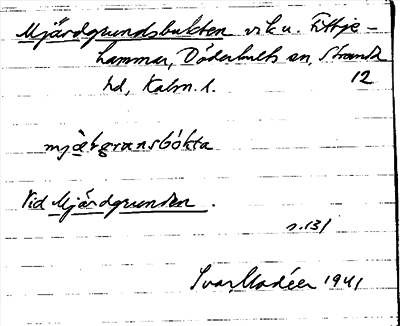 Mjärdgrundsbukten vik u. Fittje-
hammar, Döderhults sn, Stranda
hd, Kalm. l. 12
mjàrgrænsbókta
Vid Mjärdgrunden.
s. 131
Ivar Modéer 1941